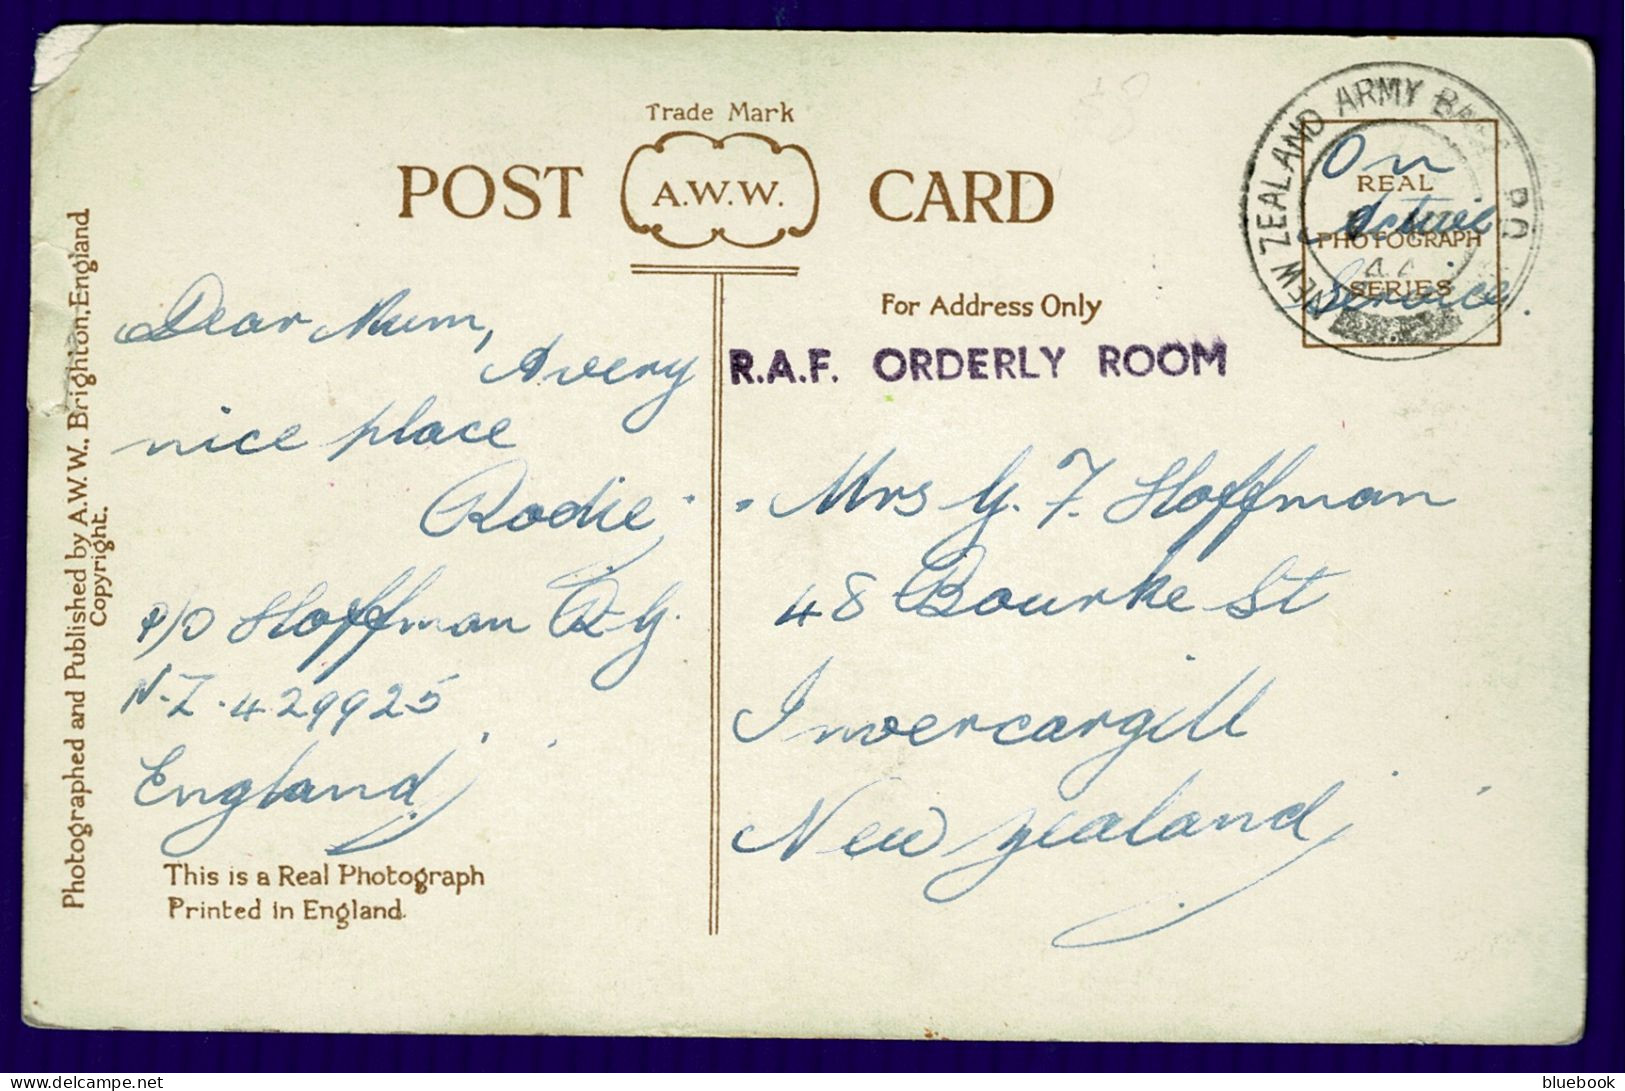 Trade Mark
POST A.W.W. CARD
NEW ZEALAND ARMY BASE P.O.
On
Active
Service.
REAL
PHOTOGRAPH
SERIES
For Address Only
R.A.F. ORDERLY ROOM
Dear Mum,
A very
nice place
Rodie
P/O Hoffman R.G.
N.Z.429925
England
Mrs G. F. Hoffman
48 Bourke St
Invercargill
New Zealand
This is a Real Photograph
Printed in England.
Photographed and Published by A.W.W., Brighton, England
Copyright.
bluebook